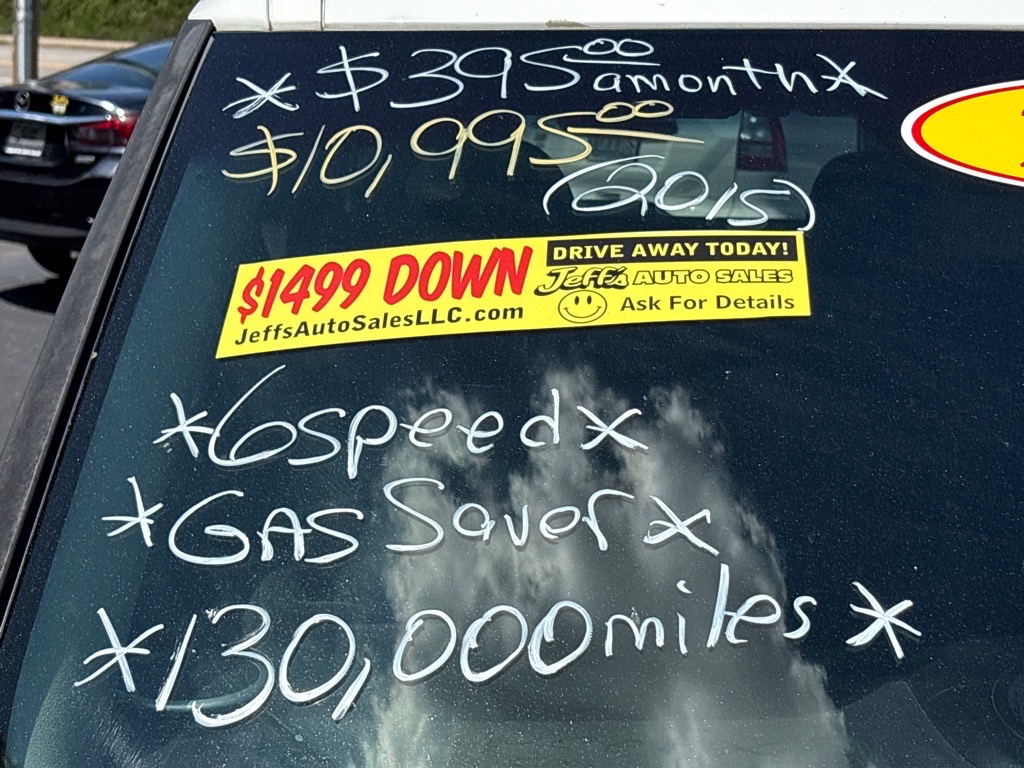 *$395.00 a month*
$10,995.00
(2015)
$1499 DOWN
JeffsAutoSalesLLC.com
DRIVE AWAY TODAY!
Jeff's AUTO SALES
Ask For Details
*6 speed*
*GAS Saver*
*130,000 miles*